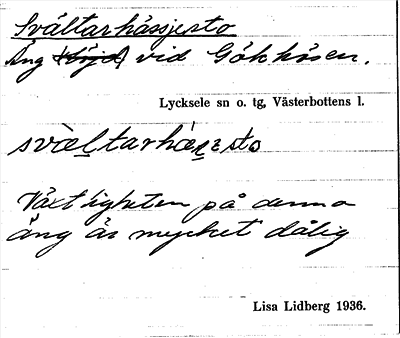 Svältarhåssjesto
Äng (Höjd) vid Gökhåsen.
Lycksele sn o. tg, Västerbottens l.
Växtligheten på denna
äng är mycket dålig
Lisa Lidberg 1936.